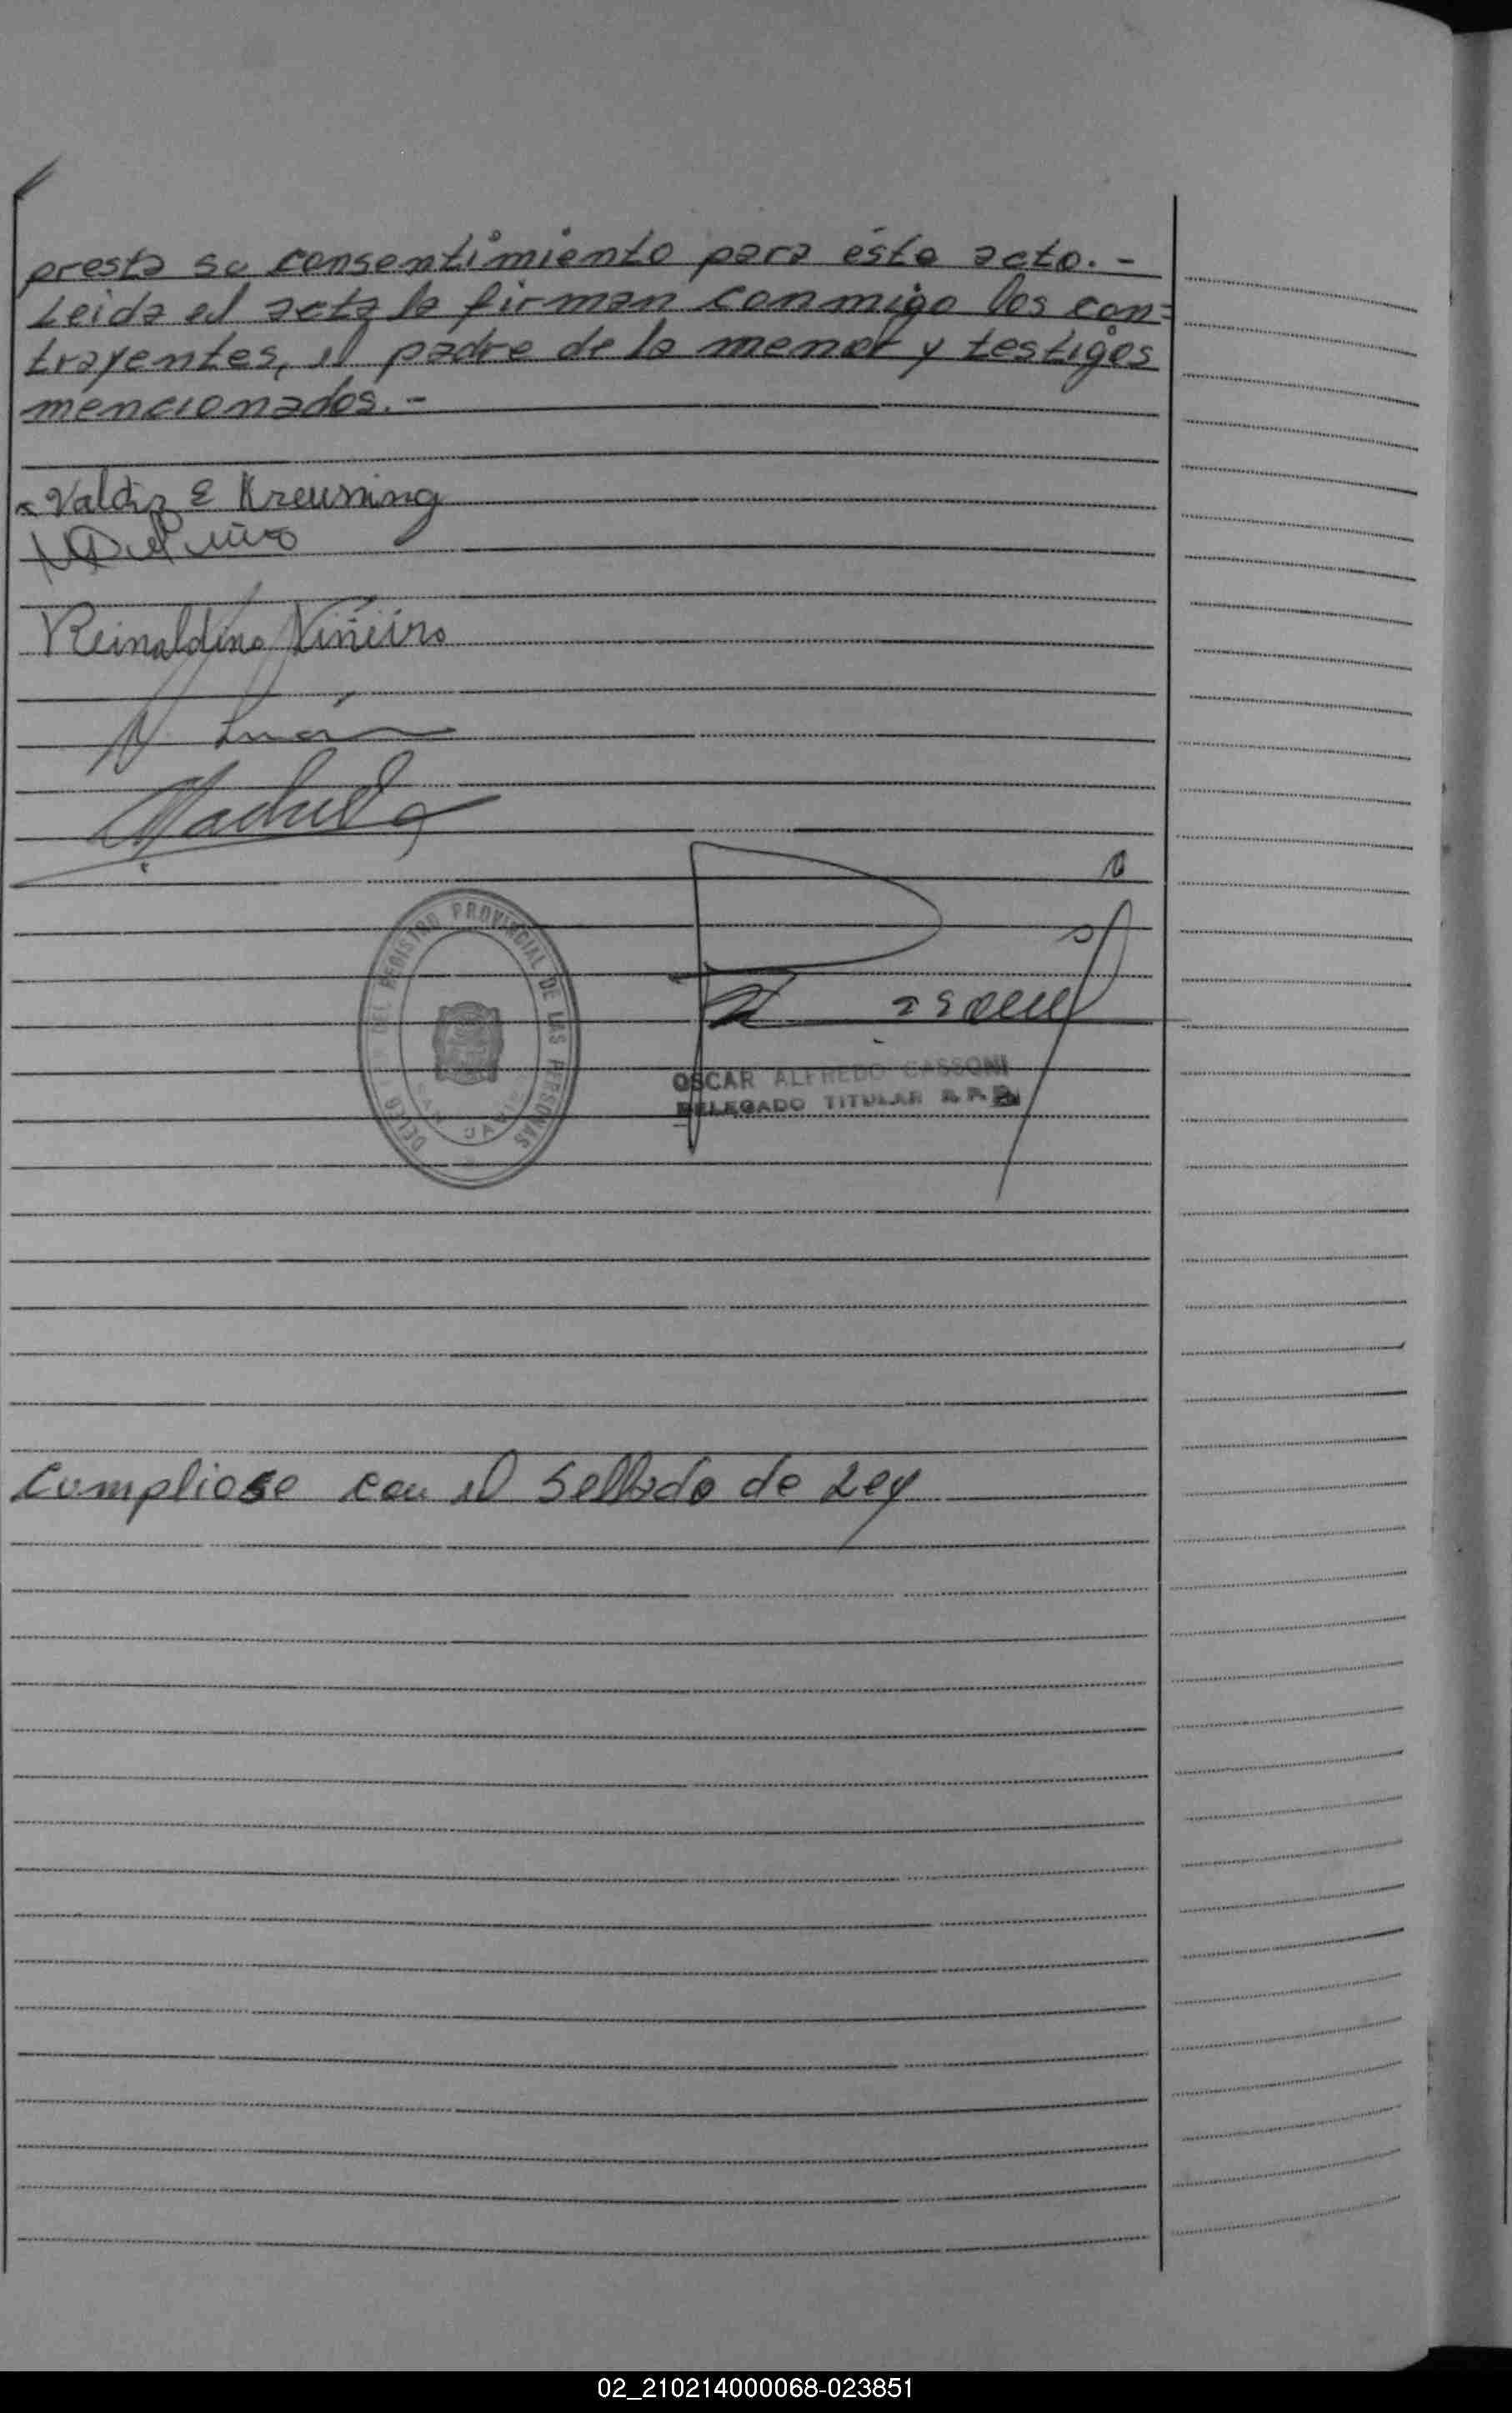 presta su consentimiento para ésta acto.-
Leida el acta la firman conmigo los con-
trayentes, el padre de la menor y testigos
mencionados.-
Valdiz E Kreusning
Reinaldino Niñeiro
DEL REGISTRO PROVINCIAL DE LAS PERSONAS
OSCAR ALFREDO CASSONI
DELEGADO TITULAR R.P.P.
Cumpliose con el Sellado de Ley
02_210214000068-023851